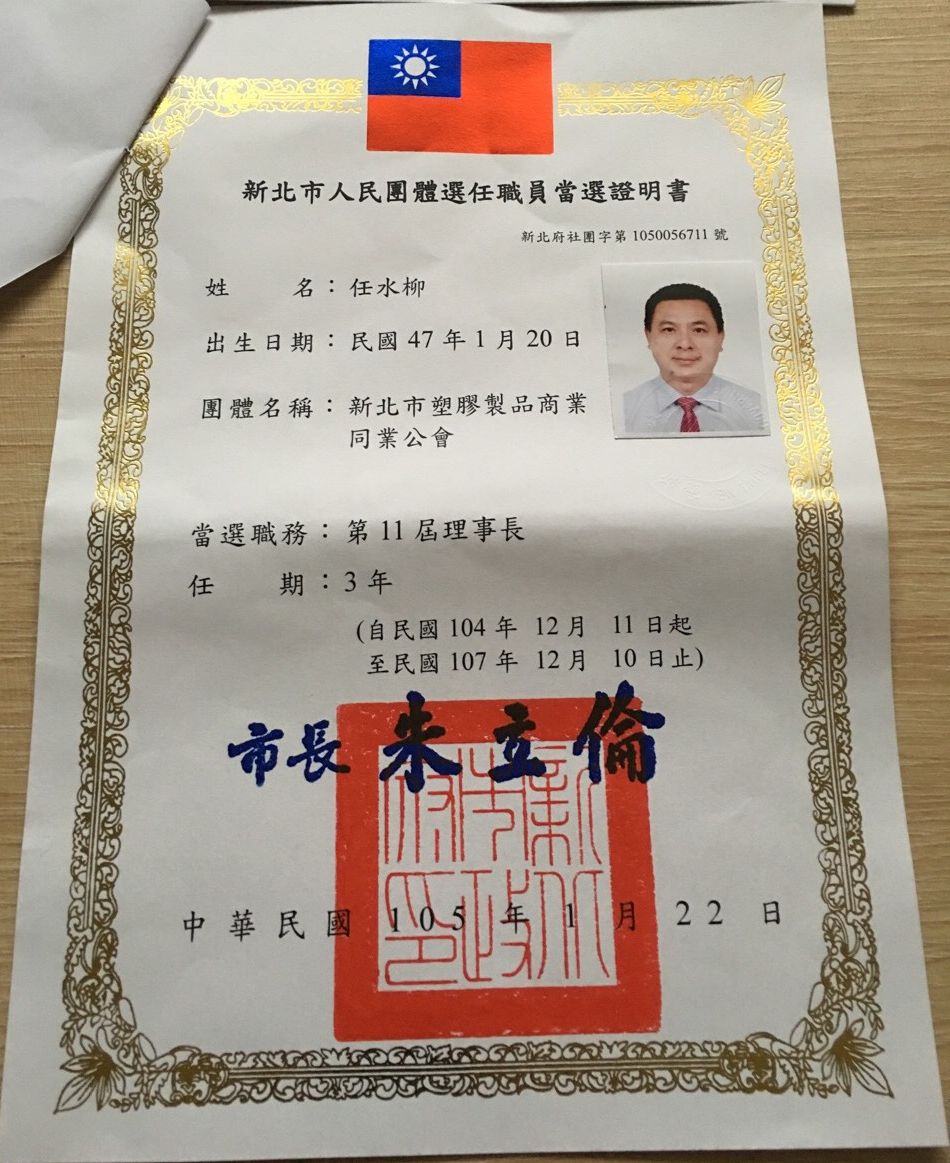 新北市人民團體選任職員當選證明書
新北府社團字第 1050056711 號
姓 名：任水柳
出生日期：民國 47 年 1 月 20 日
團體名稱：新北市塑膠製品商業
同業公會
當選職務：第 11 屆理事長
任 期：3 年
(自民國 104 年 12 月 11 日起
至民國 107 年 12 月 10 日止)
市長 朱立倫
新北市政府印
中華民國 105 年 1 月 22 日